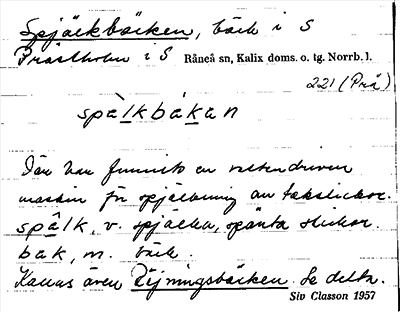 Spjälkbäcken, bäck i S
Prästholm i S Råneå sn, Kalix doms. o. tg. Norrb. l.
221 (Prä)
spà̂lkbäkan
Där har funnits en vattendriven
maskin för spjälkning av takstickor.
spâlk, v. spjälka, spänta stickor.
bäk, m. bäck.
Kallas även Röjningsbäcken. Se detta.
Siv Classon 1957